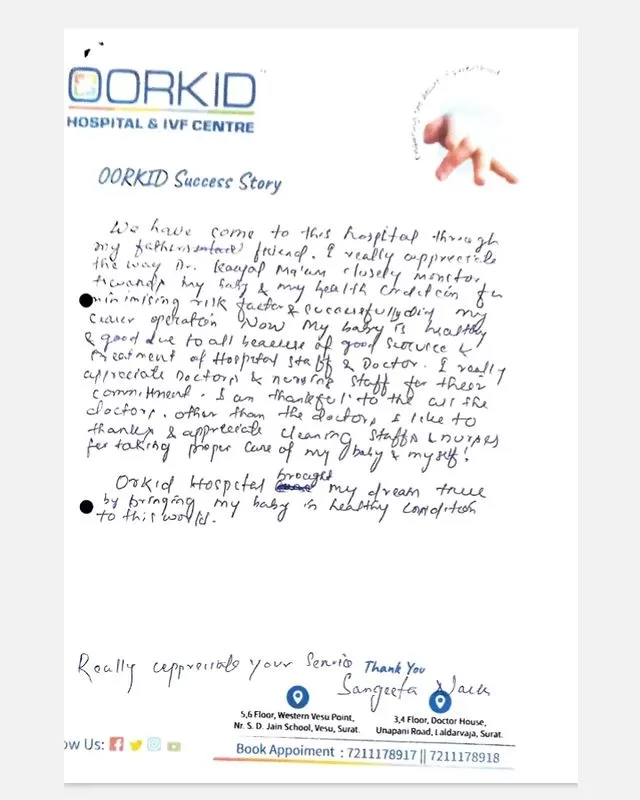 OORKID
HOSPITAL & IVF CENTRE
OORKID Success Story
We have come to this hospital through
my fathers friend. I really appreciate
the way Dr. Kaajal Ma'am closely monitor
towards my baby & my health condition for
minimising risk factor & successfully doing my
operation Now my baby is healthy
& good due to all because of good service &
treatment of Hospital staff & Doctor. I really
appreciate Doctors & nursing staff for their
commitment. I am thankful to the all the
doctors. other than the doctors I like to
thanks & appreciate cleaning staffs & nurses
for taking proper care of my baby & myself!
Orkid Hospital brought my dream true
by bringing my baby in healthy condition
to this world.
Really appreciate your service Thank You
Sangeeta
5,6 Floor, Western Vesu Point,
Nr. S. D. Jain School, Vesu, Surat.
3,4 Floor, Doctor House,
Unapani Road, Laldarvaja, Surat.
ow Us:
Book Appoiment : 7211178917 || 7211178918